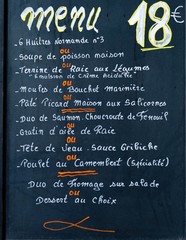 menu 18€
6 Huîtres Normande n°3
ou
Soupe de poisson maison
ou
Terrine de Raie aux Légumes
ou
Moules de Bouchot Marinière
ou
Pâté Picard Maison aux Salicornes
ou
Duo de Saumon. Choucroute de Fenouil
ou
Gratin d'aile de Raie
ou
Tête de Veau. Sauce Gribiche
ou
Poulet au Camembert (Spécialité)
Duo de Fromage sur salade
ou
Dessert au Choix